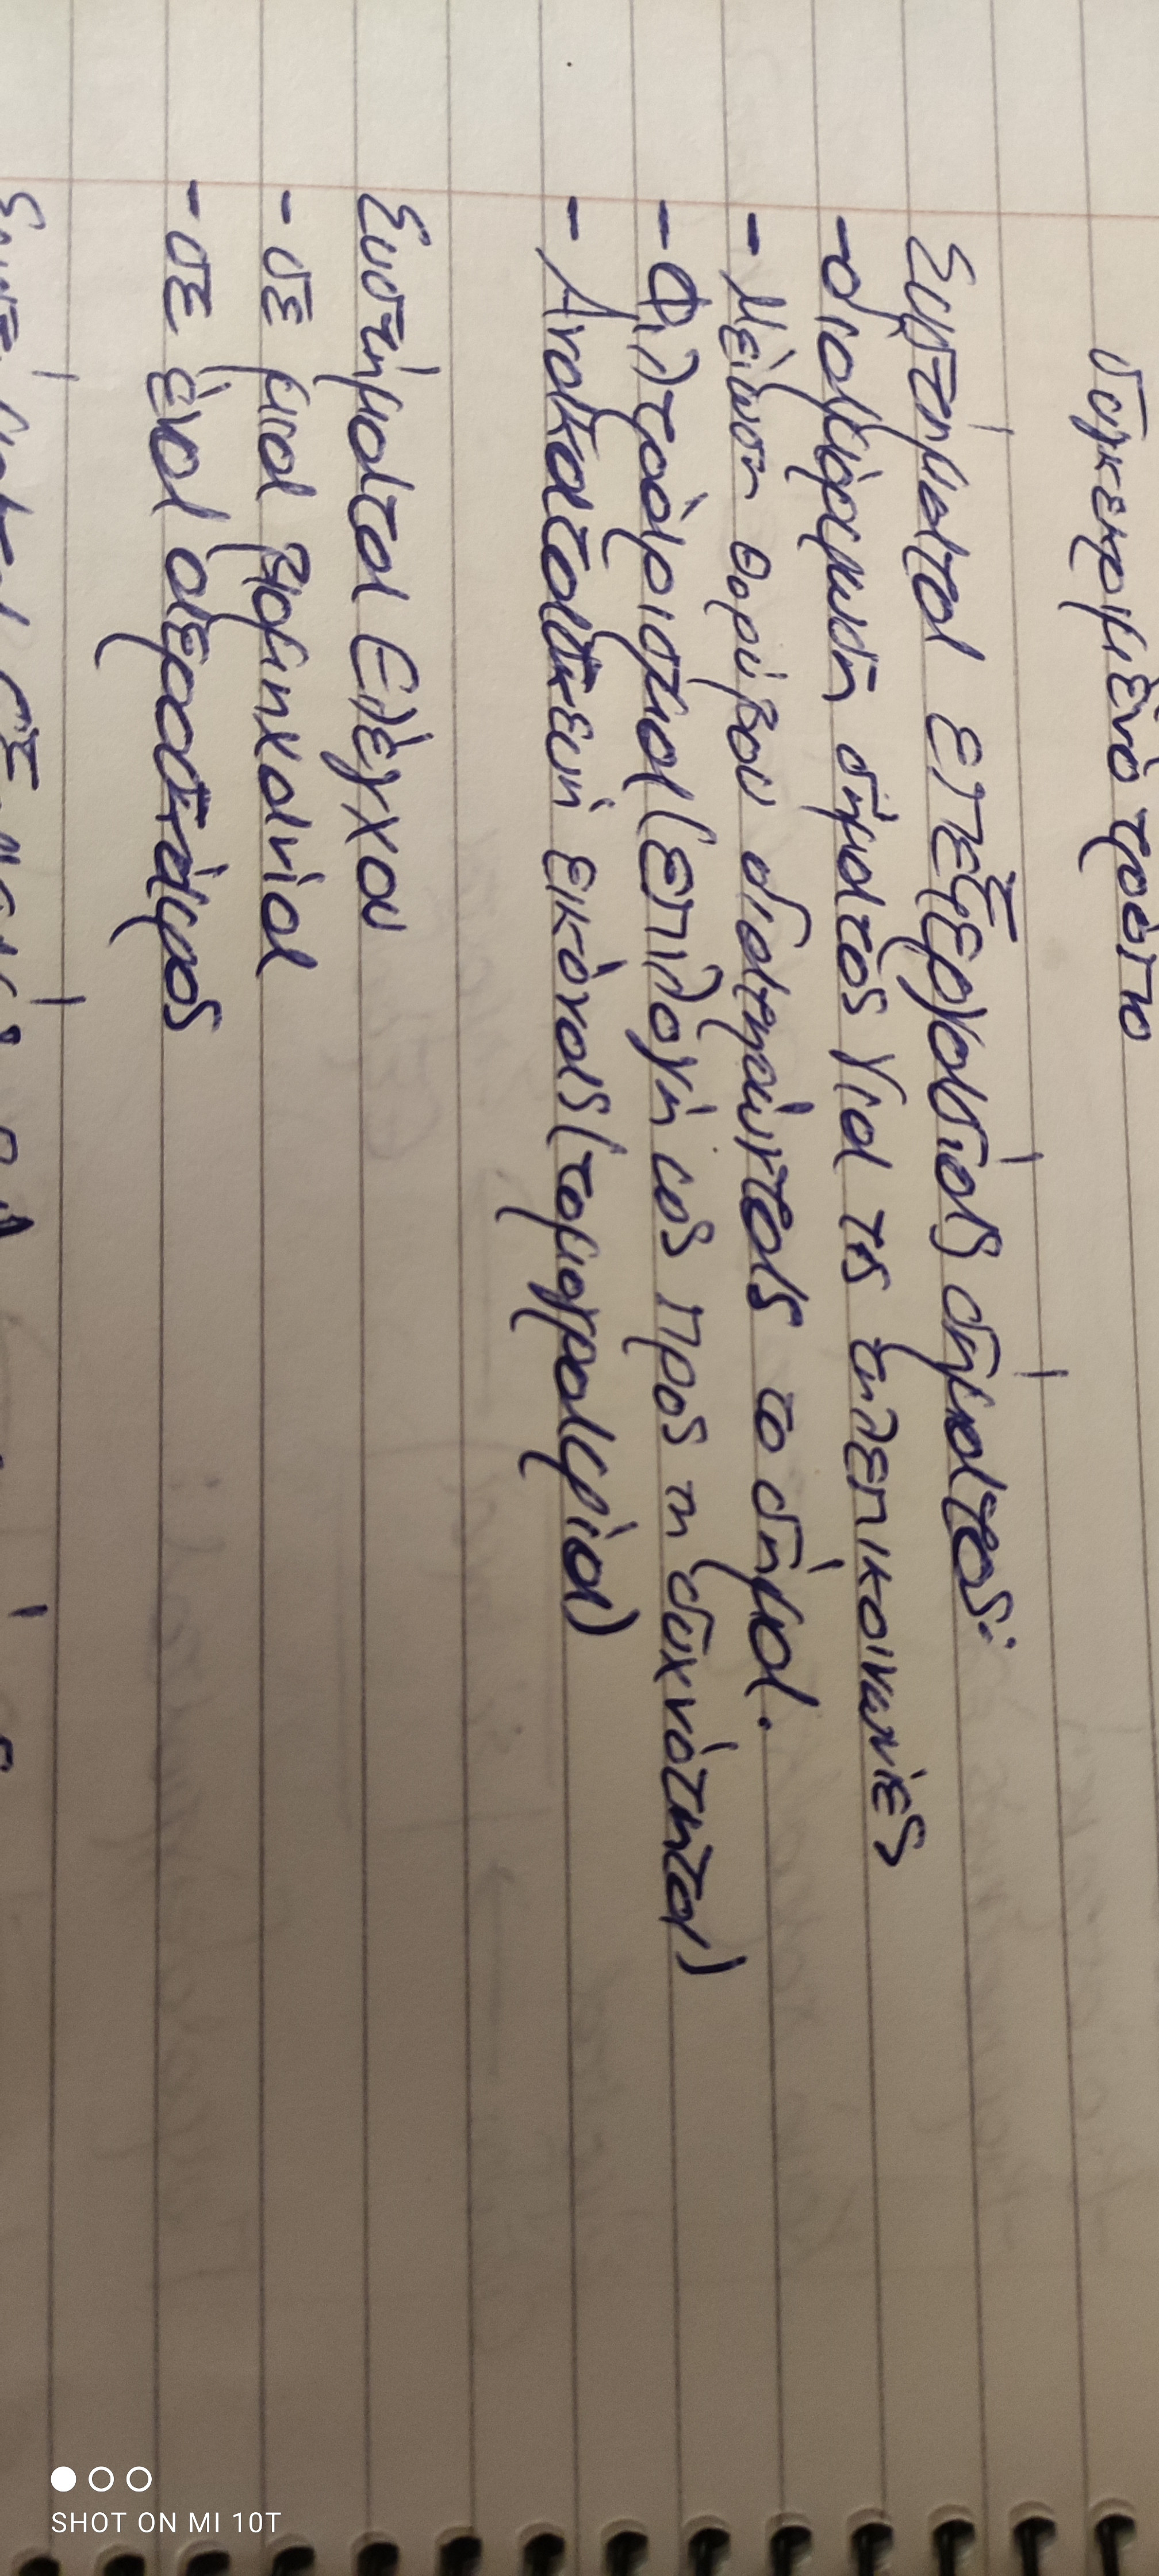 συγκεκριμένο τρόπο
Συστήματα επεξεργασίας σήματος:
-διαμόρφωση σήματος για τις τηλεπικοινωνίες
- Μείωση θορύβου διατηρώντας το σήμα.
- Φιλτράρισμα (επιλογή ως προς τη συχνότητα)
- Ανακατασκευή εικόνας (τομογραφία)
Συστήματα Ελέγχου
- σε μια βιομηχανία
- σε ένα αεροσκάφος
SHOT ON MI 10T